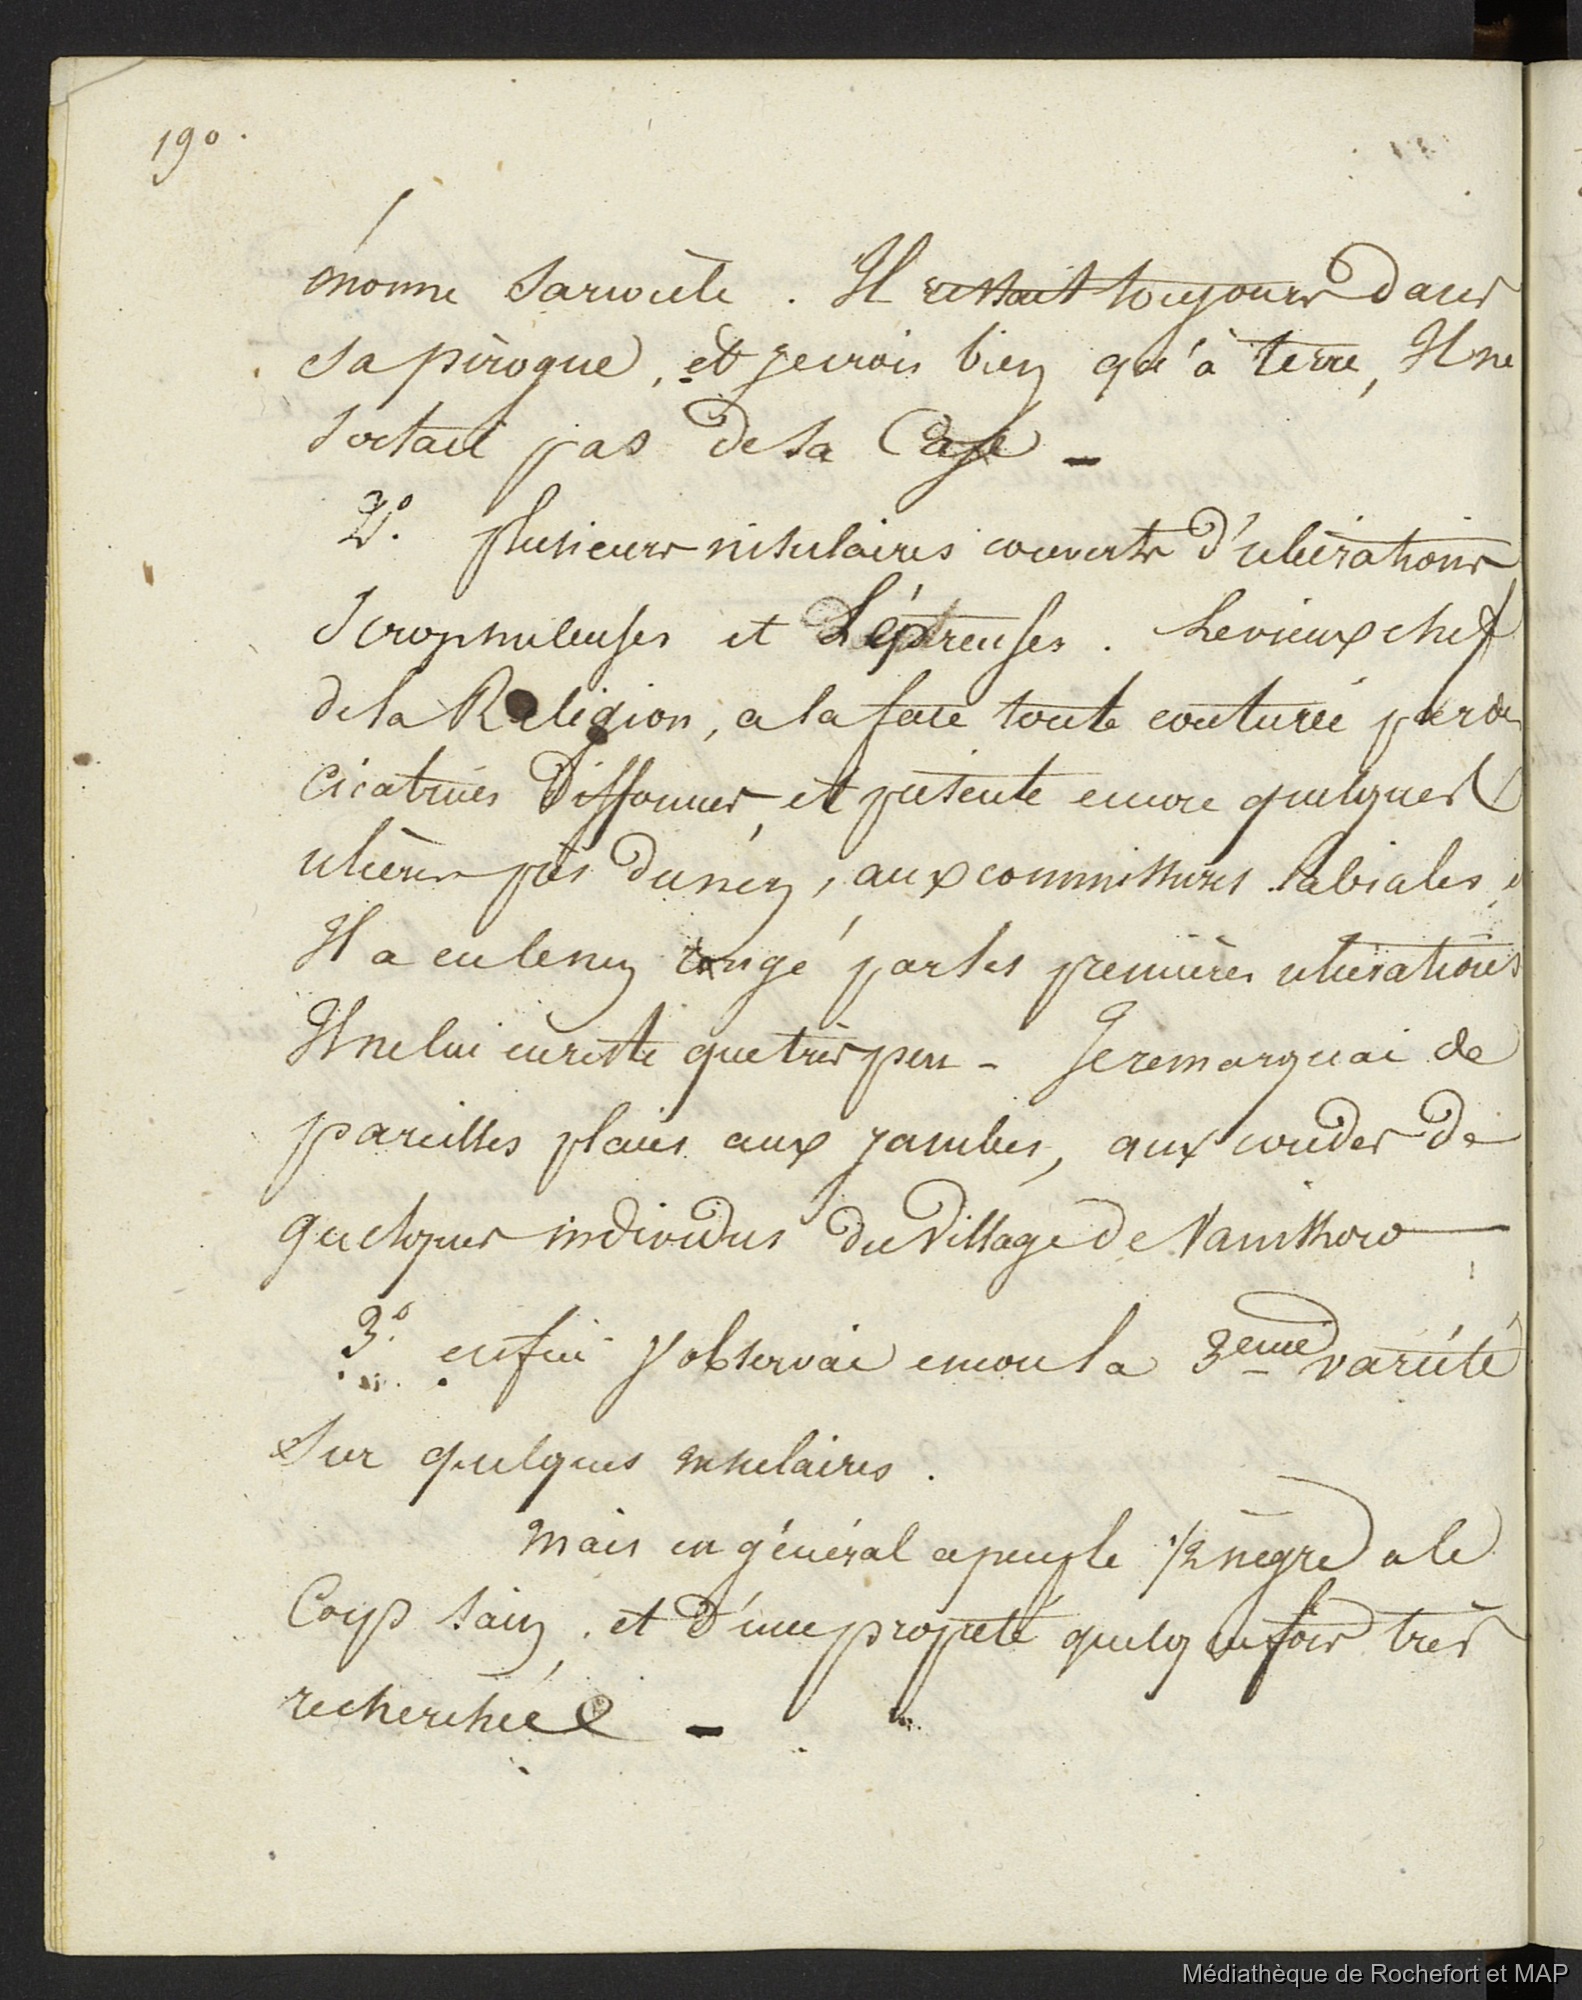 190.
énorme sarcocèle. Il restait toujours dans
sa pirogue, et je crois bien qu'à terre, Il ne
sortait pas de sa Case –
2º. plusieurs insulaires couverts d'ulcérations
scrophuleuses et Lépreuses. Le vieux chef
de la Religion, a la face toute couturée par de
cicatrices difformes, et présente encore quelques
ulcères près du néz, aux commissures labiales,
Il a eu le néz rongé par les premières ulcérations
Il ne lui en reste que très peu – Je remarquai de
pareilles plaies aux jambes, aux coudes de
quelques individus du Village de
3º. enfin j'observai encore la 3eme variété
sur quelques insulaires.
Mais en général ce peuple 1/2 nègre a le
Corps sain, et d'une propreté quelquefois très
recherchée –
Médiathèque de Rochefort et MAP